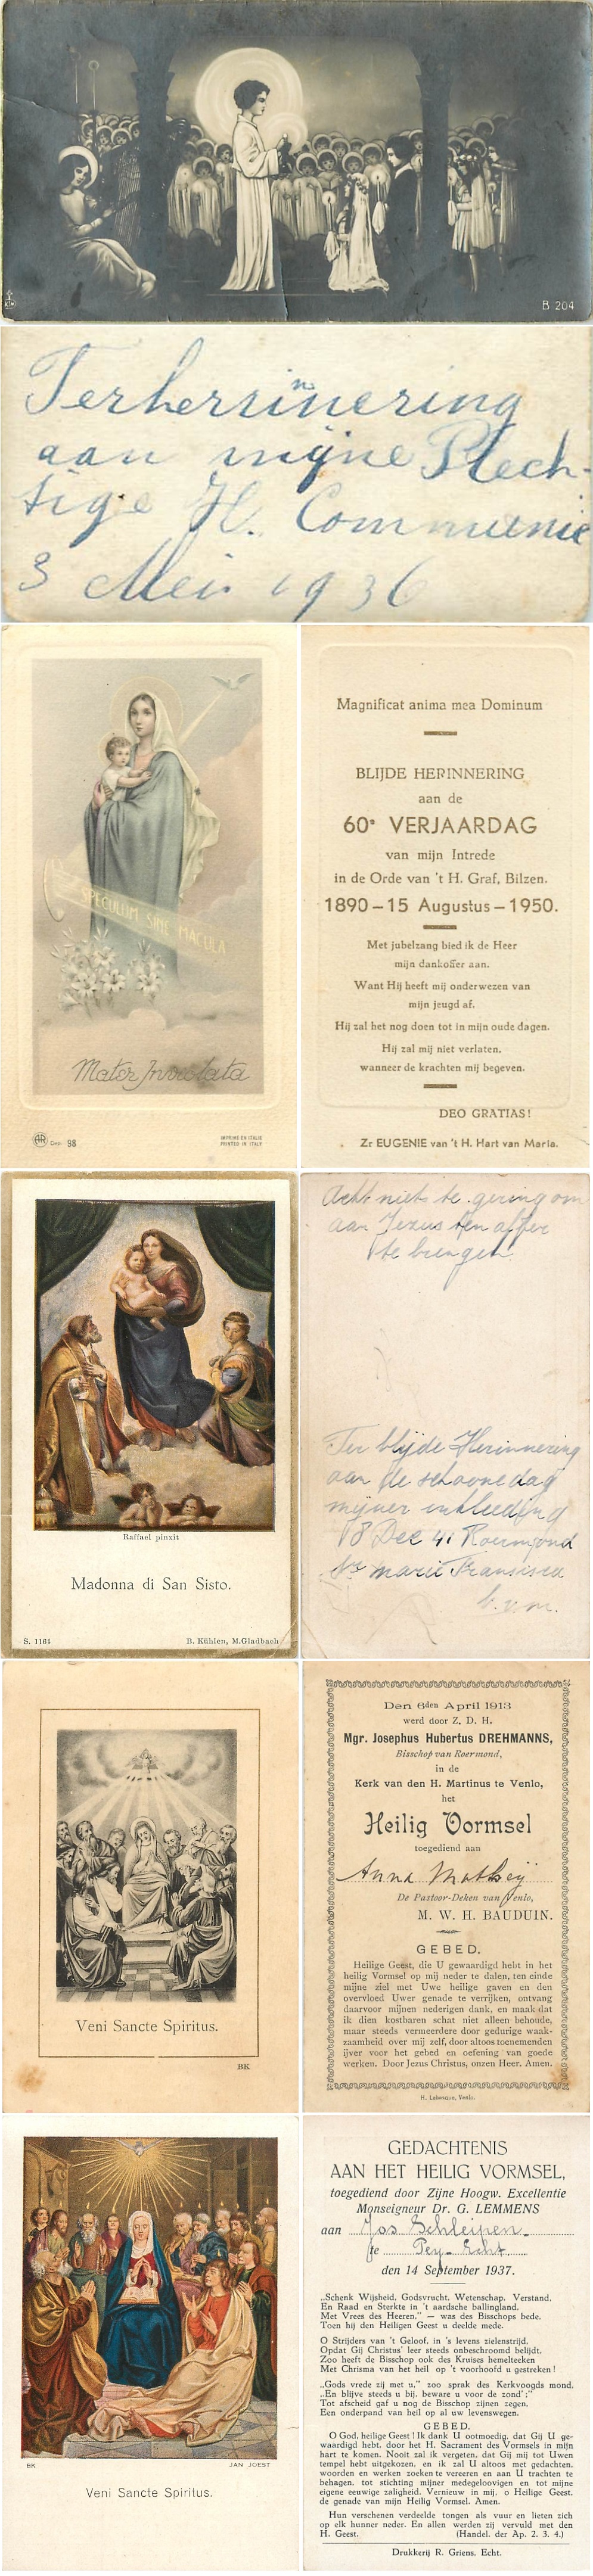 B 204
Terherrinnering
aan mijne Plech-
tige H. Communie
3 Mei 1936
SPECULUM SINE MACULA
Mater Inviolata
AR
Dep. 98
IMPRIMÉ EN ITALIE
PRINTED IN ITALY
Magnificat anima mea Dominum
BLIJDE HERINNERING
aan de
60e VERJAARDAG
van mijn Intrede
in de Orde van 't H. Graf, Bilzen.
1890 – 15 Augustus – 1950.
Met jubelzang bied ik de Heer
mijn dankoffer aan.
Want Hij heeft mij onderwezen van
mijn jeugd af.
Hij zal het nog doen tot in mijn oude dagen.
Hij zal mij niet verlaten,
wanneer de krachten mij begeven.
DEO GRATIAS!
Zr EUGENIE van 't H. Hart van Maria.
Raffael pinxit
Madonna di San Sisto.
S. 1161
B. Kühlen, M.Gladbach
Acht niets te gering om
aan Jezus ten offer
te brengen
Ter blijde Herinnering
aan de schoone dag
mijner inkleeding
18 Dec 41 Roermond
Sr marie Fransisca
b. v. m.
Veni Sancte Spiritus.
BK
Den 6den April 1913
werd door Z. D. H.
Mgr. Josephus Hubertus DREHMANNS,
Bisschop van Roermond,
in de
Kerk van den H. Martinus te Venlo,
het
Heilig Vormsel
toegediend aan
Anna
De Pastoor-Deken van Venlo,
M. W. H. BAUDUIN.
GEBED.
Heilige Geest, die U gewaardigd hebt in het
heilig Vormsel op mij neder te dalen, ten einde
mijne ziel met Uwe heilige gaven en den
overvloed Uwer genade te verrijken, ontvang
daarvoor mijnen nederigen dank, en maak dat
ik dien kostbaren schat niet alleen behoude,
maar steeds vermeerdere door gedurige waak-
zaamheid over mij zelf, door altoos toenemenden
ijver voor het gebed en oefening van goede
werken. Door Jezus Christus, onzen Heer. Amen.
H. Venlo.
BK
JAN JOEST
Veni Sancte Spiritus.
GEDACHTENIS
AAN HET HEILIG VORMSEL,
toegediend door Zijne Hoogw. Excellentie
Monseigneur Dr. G. LEMMENS
aan Jos Schleipen
te Pey-Echt
den 14 September 1937.
„Schenk Wijsheid. Godsvrucht. Wetenschap. Verstand.
En Raad en Sterkte in 't aardsche ballingland.
Met Vrees des Heeren." — was des Bisschops bede.
Toen hij den Heiligen Geest u deelde mede.
O Strijders van 't Geloof, in 's levens zielenstrijd.
Opdat Gij Christus' leer steeds onbeschroomd belijdt.
Zoo heeft de Bisschop ook des Kruises hemelteeken
Met Chrisma van het heil op 't voorhoofd u gestreken!
„Gods vrede zij met u." zoo sprak des Kerkvoogds mond.
„En blijve steeds u bij, beware u voor de zond':"
Tot afscheid gaf u nog de Bisschop zijnen zegen.
Een onderpand van heil op al uw levenswegen.
GEBED.
O God, heilige Geest! Ik dank U ootmoedig, dat Gij U ge-
waardigd hebt, door het H. Sacrament des Vormsels in mijn
hart te komen. Nooit zal ik vergeten, dat Gij mij tot Uwen
tempel hebt uitgekozen, en ik zal U altoos met gedachten,
woorden en werken zoeken te vereeren en aan U trachten te
behagen, tot stichting mijner medegeloovigen en tot mijne
eigene eeuwige zaligheid. Vernieuw in mij, o Heilige Geest,
de genade van mijn Heilig Vormsel. Amen.
Hun verschenen verdeelde tongen als vuur en lieten zich
op elk hunner neder. En allen werden zij vervuld met den
H. Geest. (Handel. der Ap. 2. 3. 4.)
Drukkerij R. Griens. Echt.